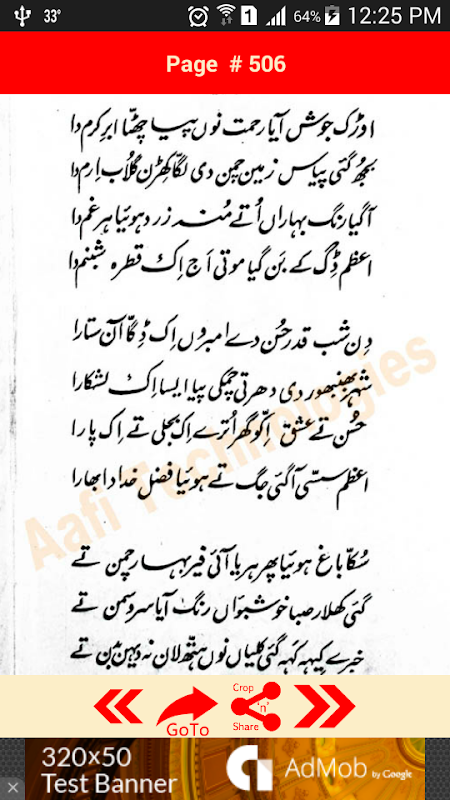 33° 1 64% 12:25 PM
Page # 506
اوڑک جوش آیا رحمت نوں پیا چھٹا ابرِ کرم دا
بجھ گئی پیاس زمین چمن دی لگا کھڑن گلاب اِرم دا
آگیا رنگ بہاراں اُتے مُنہ زرد ہوئیا ہر غم دا
اعظم ڈِگ کے بَن گیا موتی اَج اِک قطرہ شبنم دا
دِن شب قدر حُسن دے امبروں اِک ڈِگا آن ستارا
شہر بھنبھور دی دھرتی چمکی پیا ایسا اِک لشکارا
حُسن تے عشق اِکو گھر اُترے اِک بجلی تے اِک پارا
اعظم سسّی آگئی جگ تے ہوئیا فضل خدا دا بھارا
سُکا باغ ہوئیا پھر ہریا آئی فیر بہار چمن تے
گئی کھلار صبا خوشبواں رنگ آیا سرو سمن تے
خبرے کیہہ کہہ گئی کلیاں نوں ہتھ لان نہ دیہن بدن تے
Aafi Technologies
GoTo
Crop
'n'
Share
320×50
Test Banner
AdMob by Google